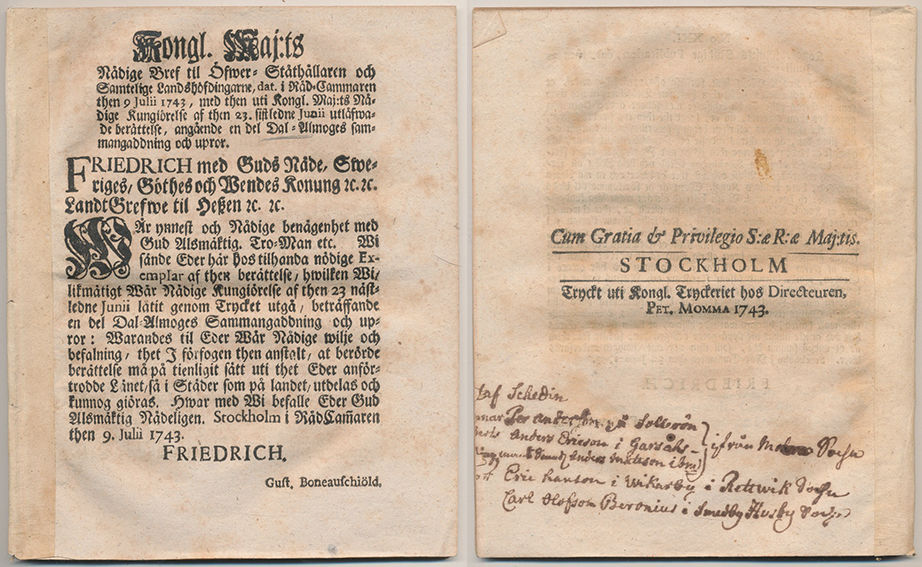 Kongl. Maj:ts
Nådige Bref til Öfwer-Ståthållaren och
Samtelige Landshöfdingarne, dat. i Råd-Cammaren
then 9 Julii 1743, med then uti Kongl. Maj:ts Nå-
dige Kungiörelse af then 23. sistledne Junii utläfwa-
de berättelse, angående en del Dal-Almoges sam-
mangaddning och upror.
FRIEDRICH med Guds Nåde, Swe-
riges, Göthes och Wendes Konung ꝛc. ꝛc.
LandtGrefwe til Heßen ꝛc. ꝛc.
WÅr ynnest och Nådige benägenhet med
Gud Alsmäktig. Tro-Man etc. Wi
sände Eder här hos tilhanda nödige Ex-
emplar af then berättelse, hwilken Wi/
likmätigt Wår Nådige Kungiörelse af then 23 näst-
ledne Junii låtit genom Trycket utgå, beträffande
en del Dal-Almoges Sammangaddning och up-
ror: Warandes til Eder Wår Nådige wilje och
befalning, thet I förfogen then anstalt, at berörde
berättelse må på tienligit sätt uti thet Eder anför-
trodde Länet/så i Städer som på landet, utdelas och
kunnog giöras. Hwar med Wi befalle Eder Gud
Alsmäktig Nådeligen. Stockholm i RådCam̃aren
then 9. Julii 1743.
FRIEDRICH.
Gust. Boneauschiöld.
Cum Gratia & Privilegio S:æ R:æ Maj:tis.
STOCKHOLM
Tryckt uti Kongl. Tryckeriet hos Directeuren,
PET. MOMMA 1743.
FRIEDRICH
taf Schedin
Per Anderson på Sollerön
Anders Ericson i Garsåhs
Anders Matsson ibm
ifrån Mora Sochn
Eric Hanson i Wikarby i Rettwik Sochn
Carl Olofson Beronius i Smedby Husby Sochn